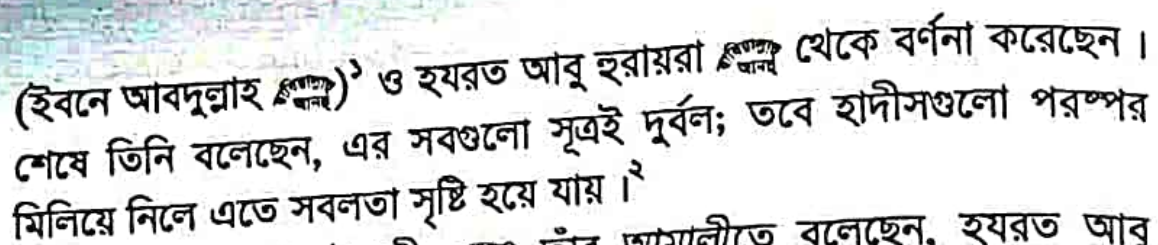 (ইবনে আবদুল্লাহ )১ ও হযরত আবু হুরায়রা থেকে বর্ণনা করেছেন।
শেষে তিনি বলেছেন, এর সবগুলো সূত্রই দুর্বল; তবে হাদীসগুলো পরষ্পর
মিলিয়ে নিলে এতে সবলতা সৃষ্টি হয়ে যায়।২
তাঁর আমালীতে বলেছেন, হযরত আবু